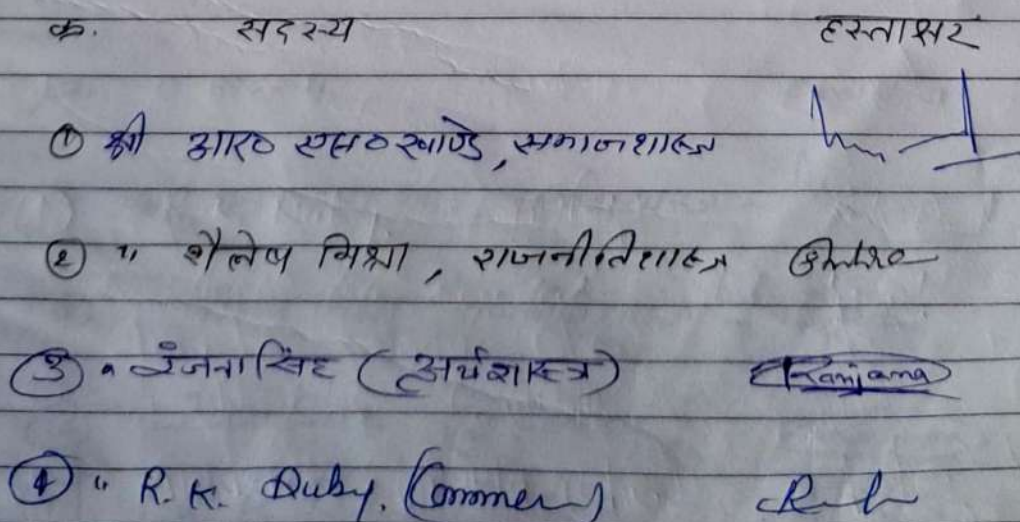 क्र. सदस्य हस्ताक्षर
① श्री आर० एस० खाण्डे, समाजशास्त्र
② " शैलेष मिश्रा, राजनीतिशास्त्र
③ " रंजना सिंह (अर्थशास्त्र) Ranjana
④ " R. K. Duby. (Commer)